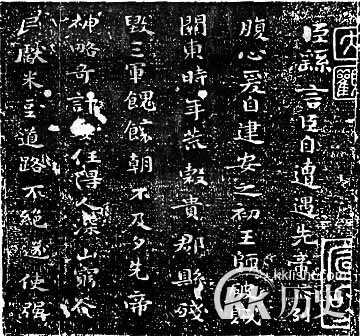 臣繇言臣自遭遇先帝
腹心爰自建安之初王師破賊
關東時年荒穀貴郡縣殘
毀三軍餽饟朝不及夕先帝
神略奇計委任得人深山窮谷
民獻米豆道路不絕遂使强
kklishi.com
KK历史